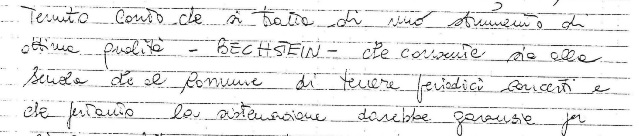 Tenuto conto che si tratta di uno strumento di
ottima qualità - BECHSTEIN - che consente sia alla
Scuola che al Comune di tenere periodici concerti e
che pertanto la sistemazione darebbe garanzie per